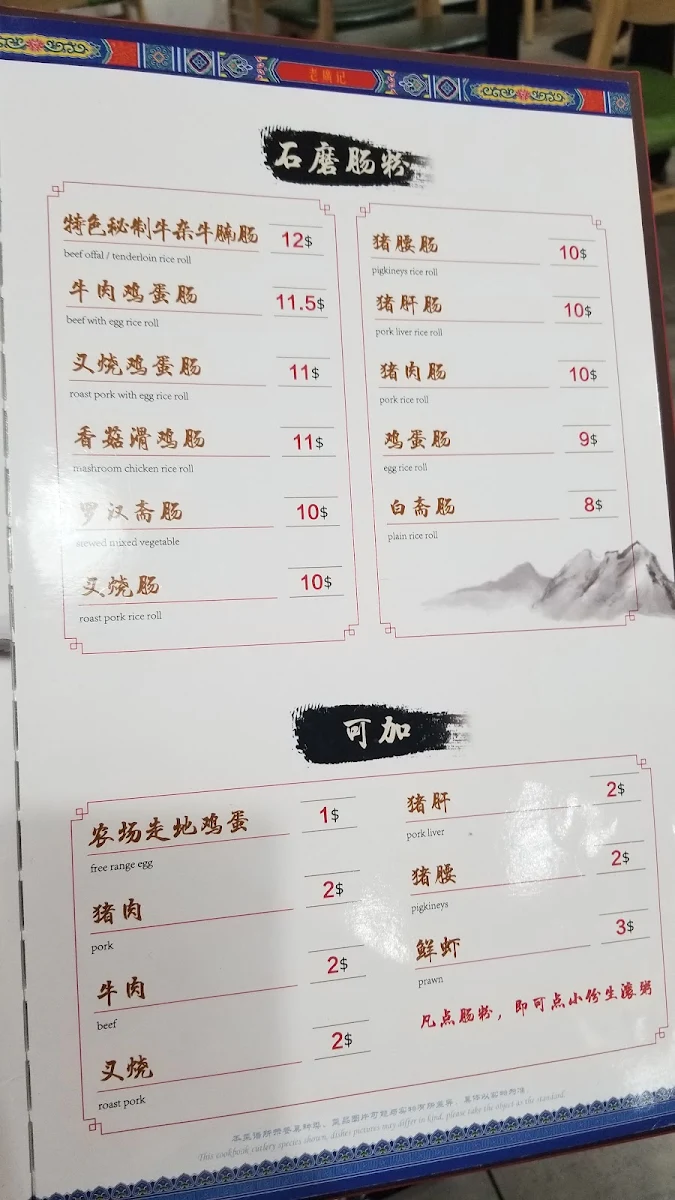 石磨肠粉
特色秘制牛杂牛腩肠 12$
beef offal / tenderloin rice roll
牛肉鸡蛋肠 11.5$
beef with egg rice roll
叉烧鸡蛋肠 11$
roast pork with egg rice roll
香菇滑鸡肠 11$
mashroom chicken rice roll
罗汉斋肠 10$
stewed mixed vegetable
叉烧肠 10$
roast pork rice roll
猪腰肠 10$
pigkineys rice roll
猪肝肠 10$
pork liver rice roll
猪肉肠 10$
pork rice roll
鸡蛋肠 9$
egg rice roll
白斋肠 8$
plain rice roll
可加
农场走地鸡蛋 1$
free range egg
猪肉 2$
pork
牛肉 2$
beef
叉烧 2$
roast pork
猪肝 2$
pork liver
猪腰 2$
pigkineys
鲜虾 3$
prawn
凡点肠粉，即可点小份生滚粥
This cookbook cutlery species shown, dishes pictures may differ in kind, please take the object as the standard.